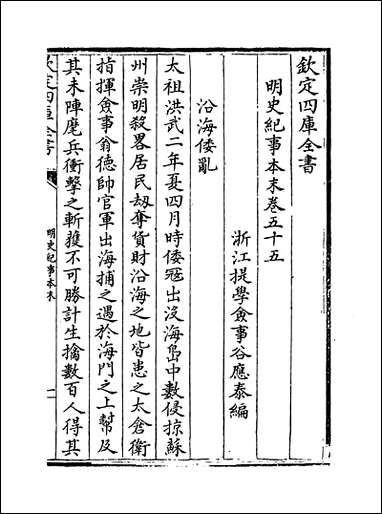 欽定四庫全書
明史紀事本末卷五十五
浙江提學僉事谷應泰編
沿海倭亂
太祖洪武二年夏四月時倭冦出沒海島中數侵掠蘇
州崇明殺畧居民劫奪貨財沿海之地皆患之太倉衛
指揮僉事翁德帥官軍出海捕之遇於海門之上幫及
其未陣麾兵衝擊之斬獲不可勝計生擒數百人得其
欽定四庫全書
明史紀事本末
一